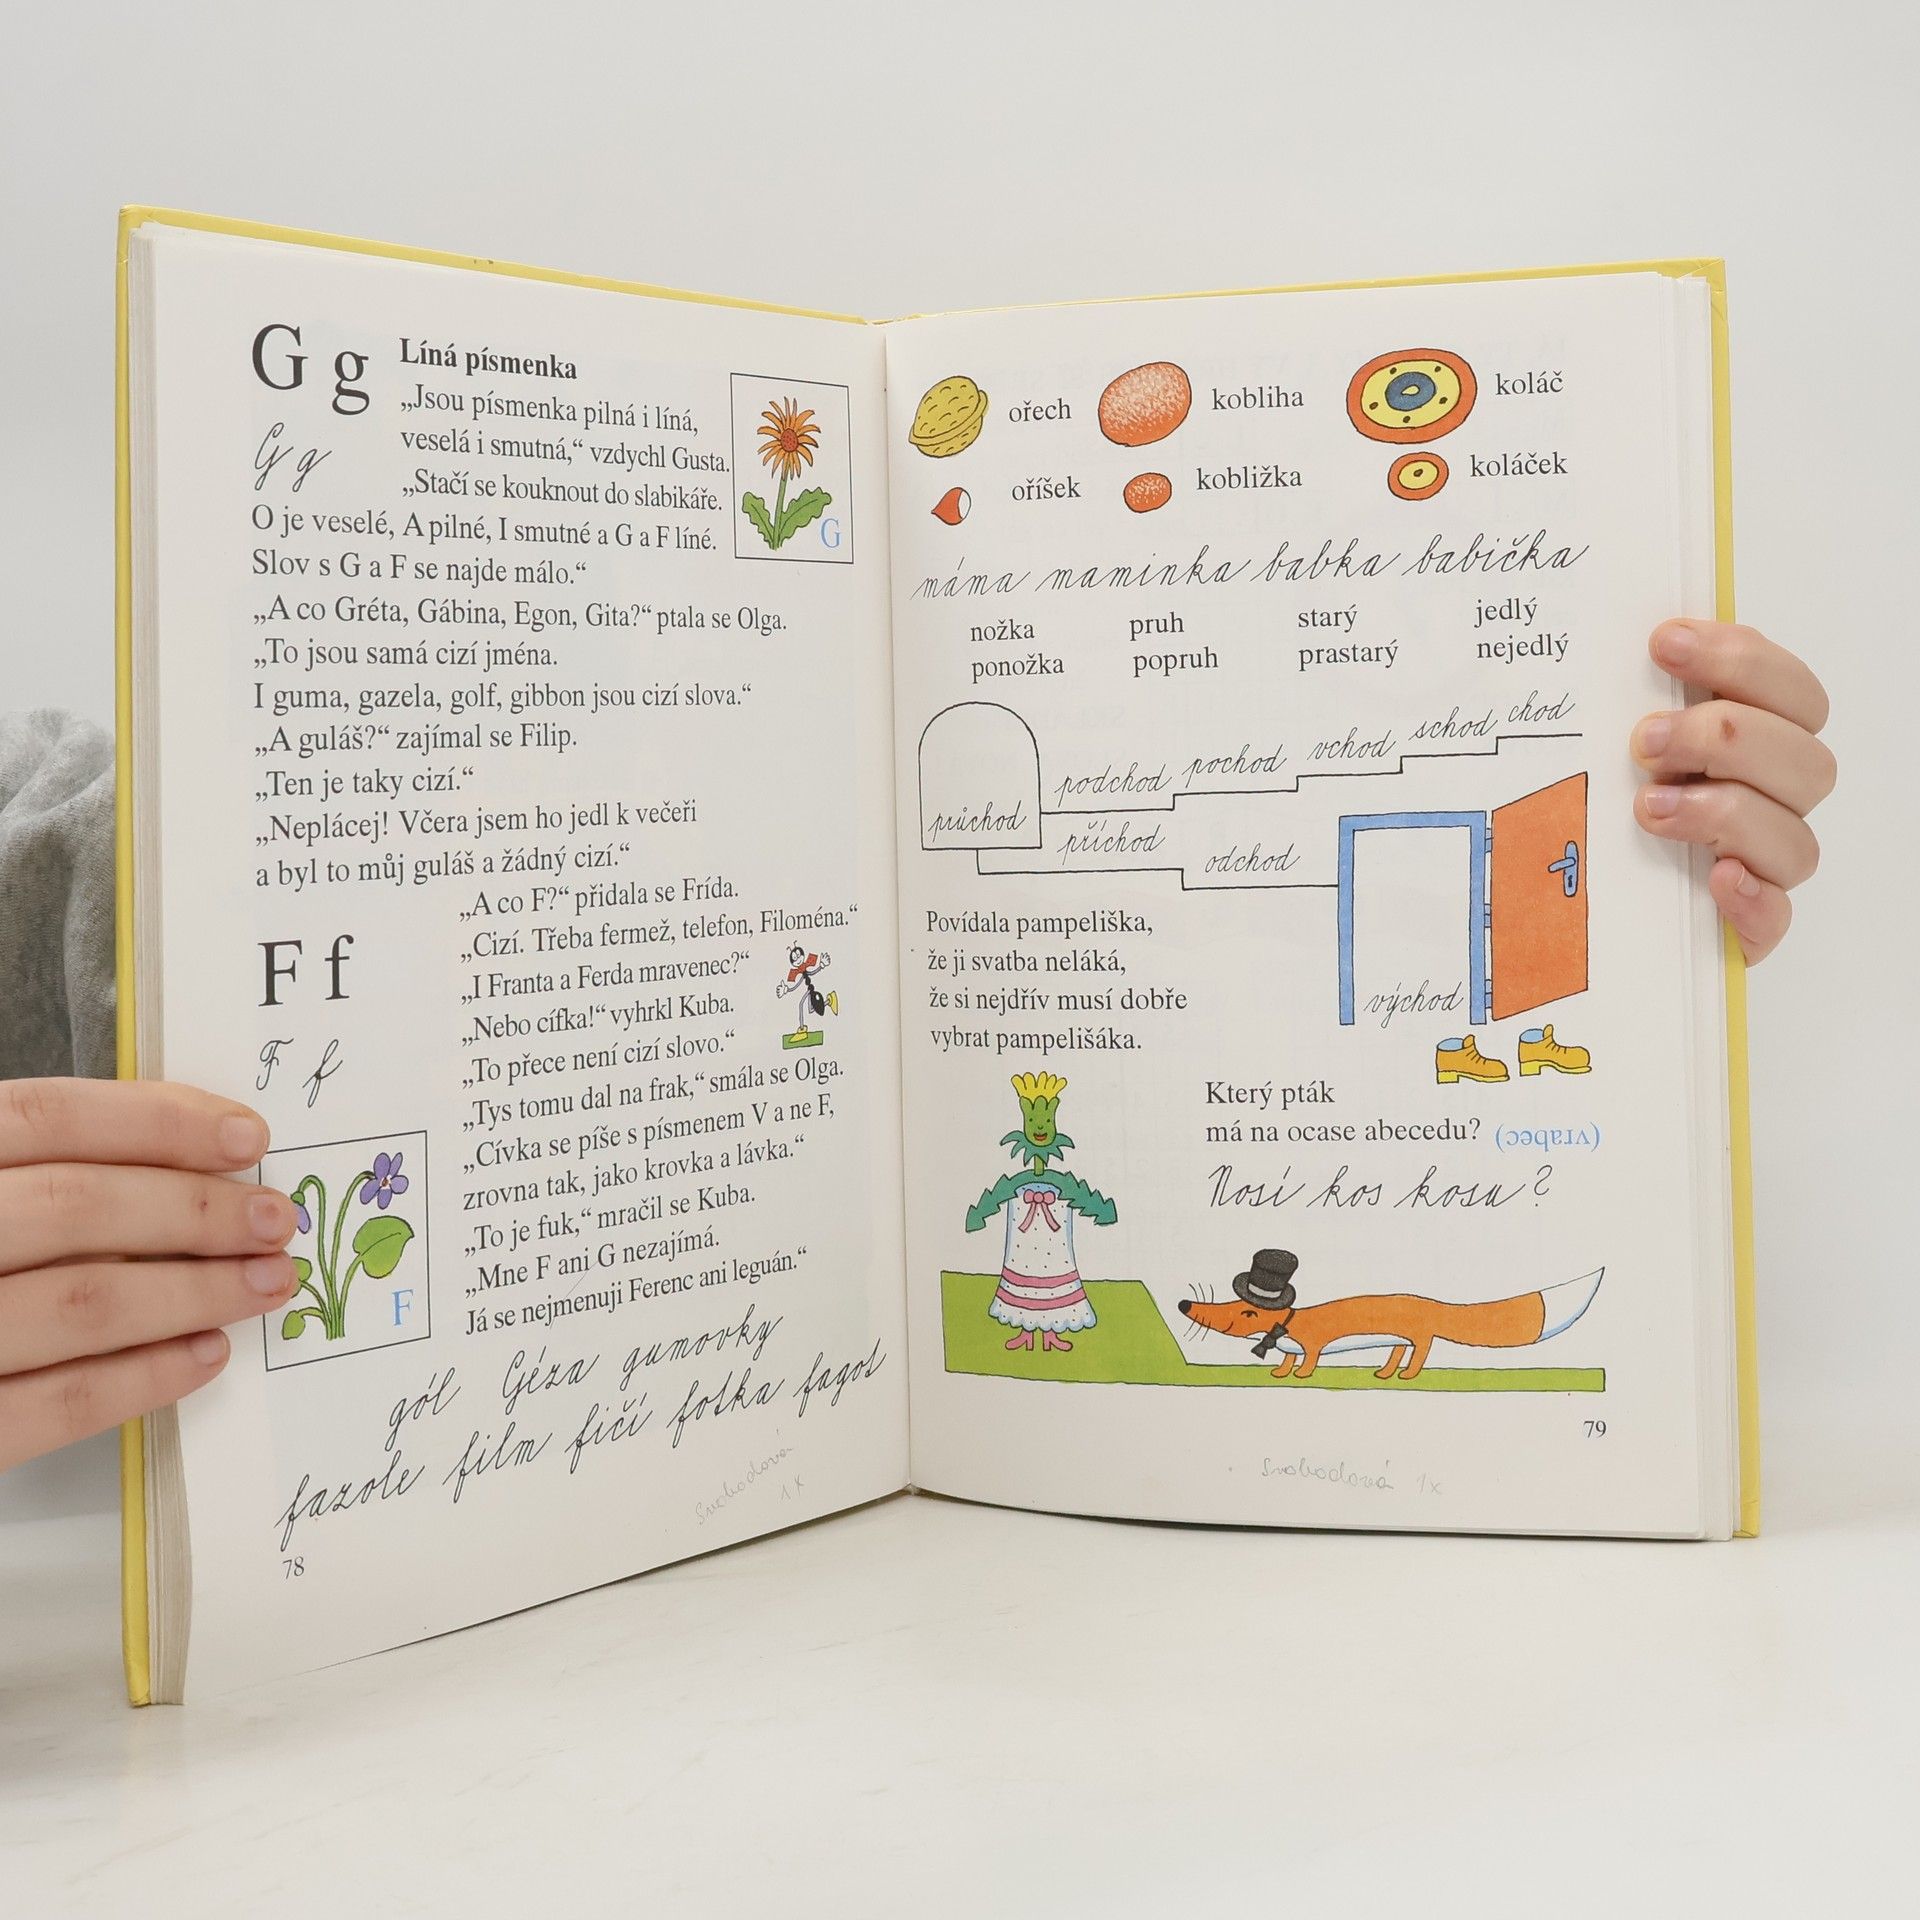 G g
Líná písmenka
„Jsou písmenka pilná i líná,
veselá i smutná,“ vzdychl Gusta.
G g
„Stačí se kouknout do slabikáře.
O je veselé, A pilné, I smutné a G a F líné.
G
Slov s G a F se najde málo.“
„A co Gréta, Gábina, Egon, Gita?“ ptala se Olga.
„To jsou samá cizí jména.
I guma, gazela, golf, gibbon jsou cizí slova.“
„A guláš?“ zajímal se Filip.
„Ten je taky cizí.“
„Neplácej! Včera jsem ho jedl k večeři
a byl to můj guláš a žádný cizí.“
„A co F?“ přidala se Frída.
F f
„Cizí. Třeba fermež, telefon, Filoména.“
„I Franta a Ferda mravenec?“
„Nebo cífka!“ vyhrkl Kuba.
F f
„To přece není cizí slovo.“
„Tys tomu dal na frak,“ smála se Olga.
„Cívka se píše s písmenem V a ne F,
zrovna tak, jako krovka a lávka.“
„To je fuk,“ mračil se Kuba.
„Mne F ani G nezajímá.
Já se nejmenuji Ferenc ani leguán.“
F
gól Géza gumovky
fazole film fičí fotka fagot
Svobodová
1x
78
ořech kobliha koláč
oříšek kobližka koláček
máma maminka babka babička
nožka pruh starý jedlý
ponožka popruh prastarý nejedlý
průchod podchod pochod vchod schod chod
příchod odchod
východ
Povídala pampeliška,
že ji svatba neláká,
že si nejdřív musí dobře
vybrat pampelišáka.
Který pták
má na ocase abecedu? (vrabec)
Nosí kos kosu?
79
Svobodová 1x